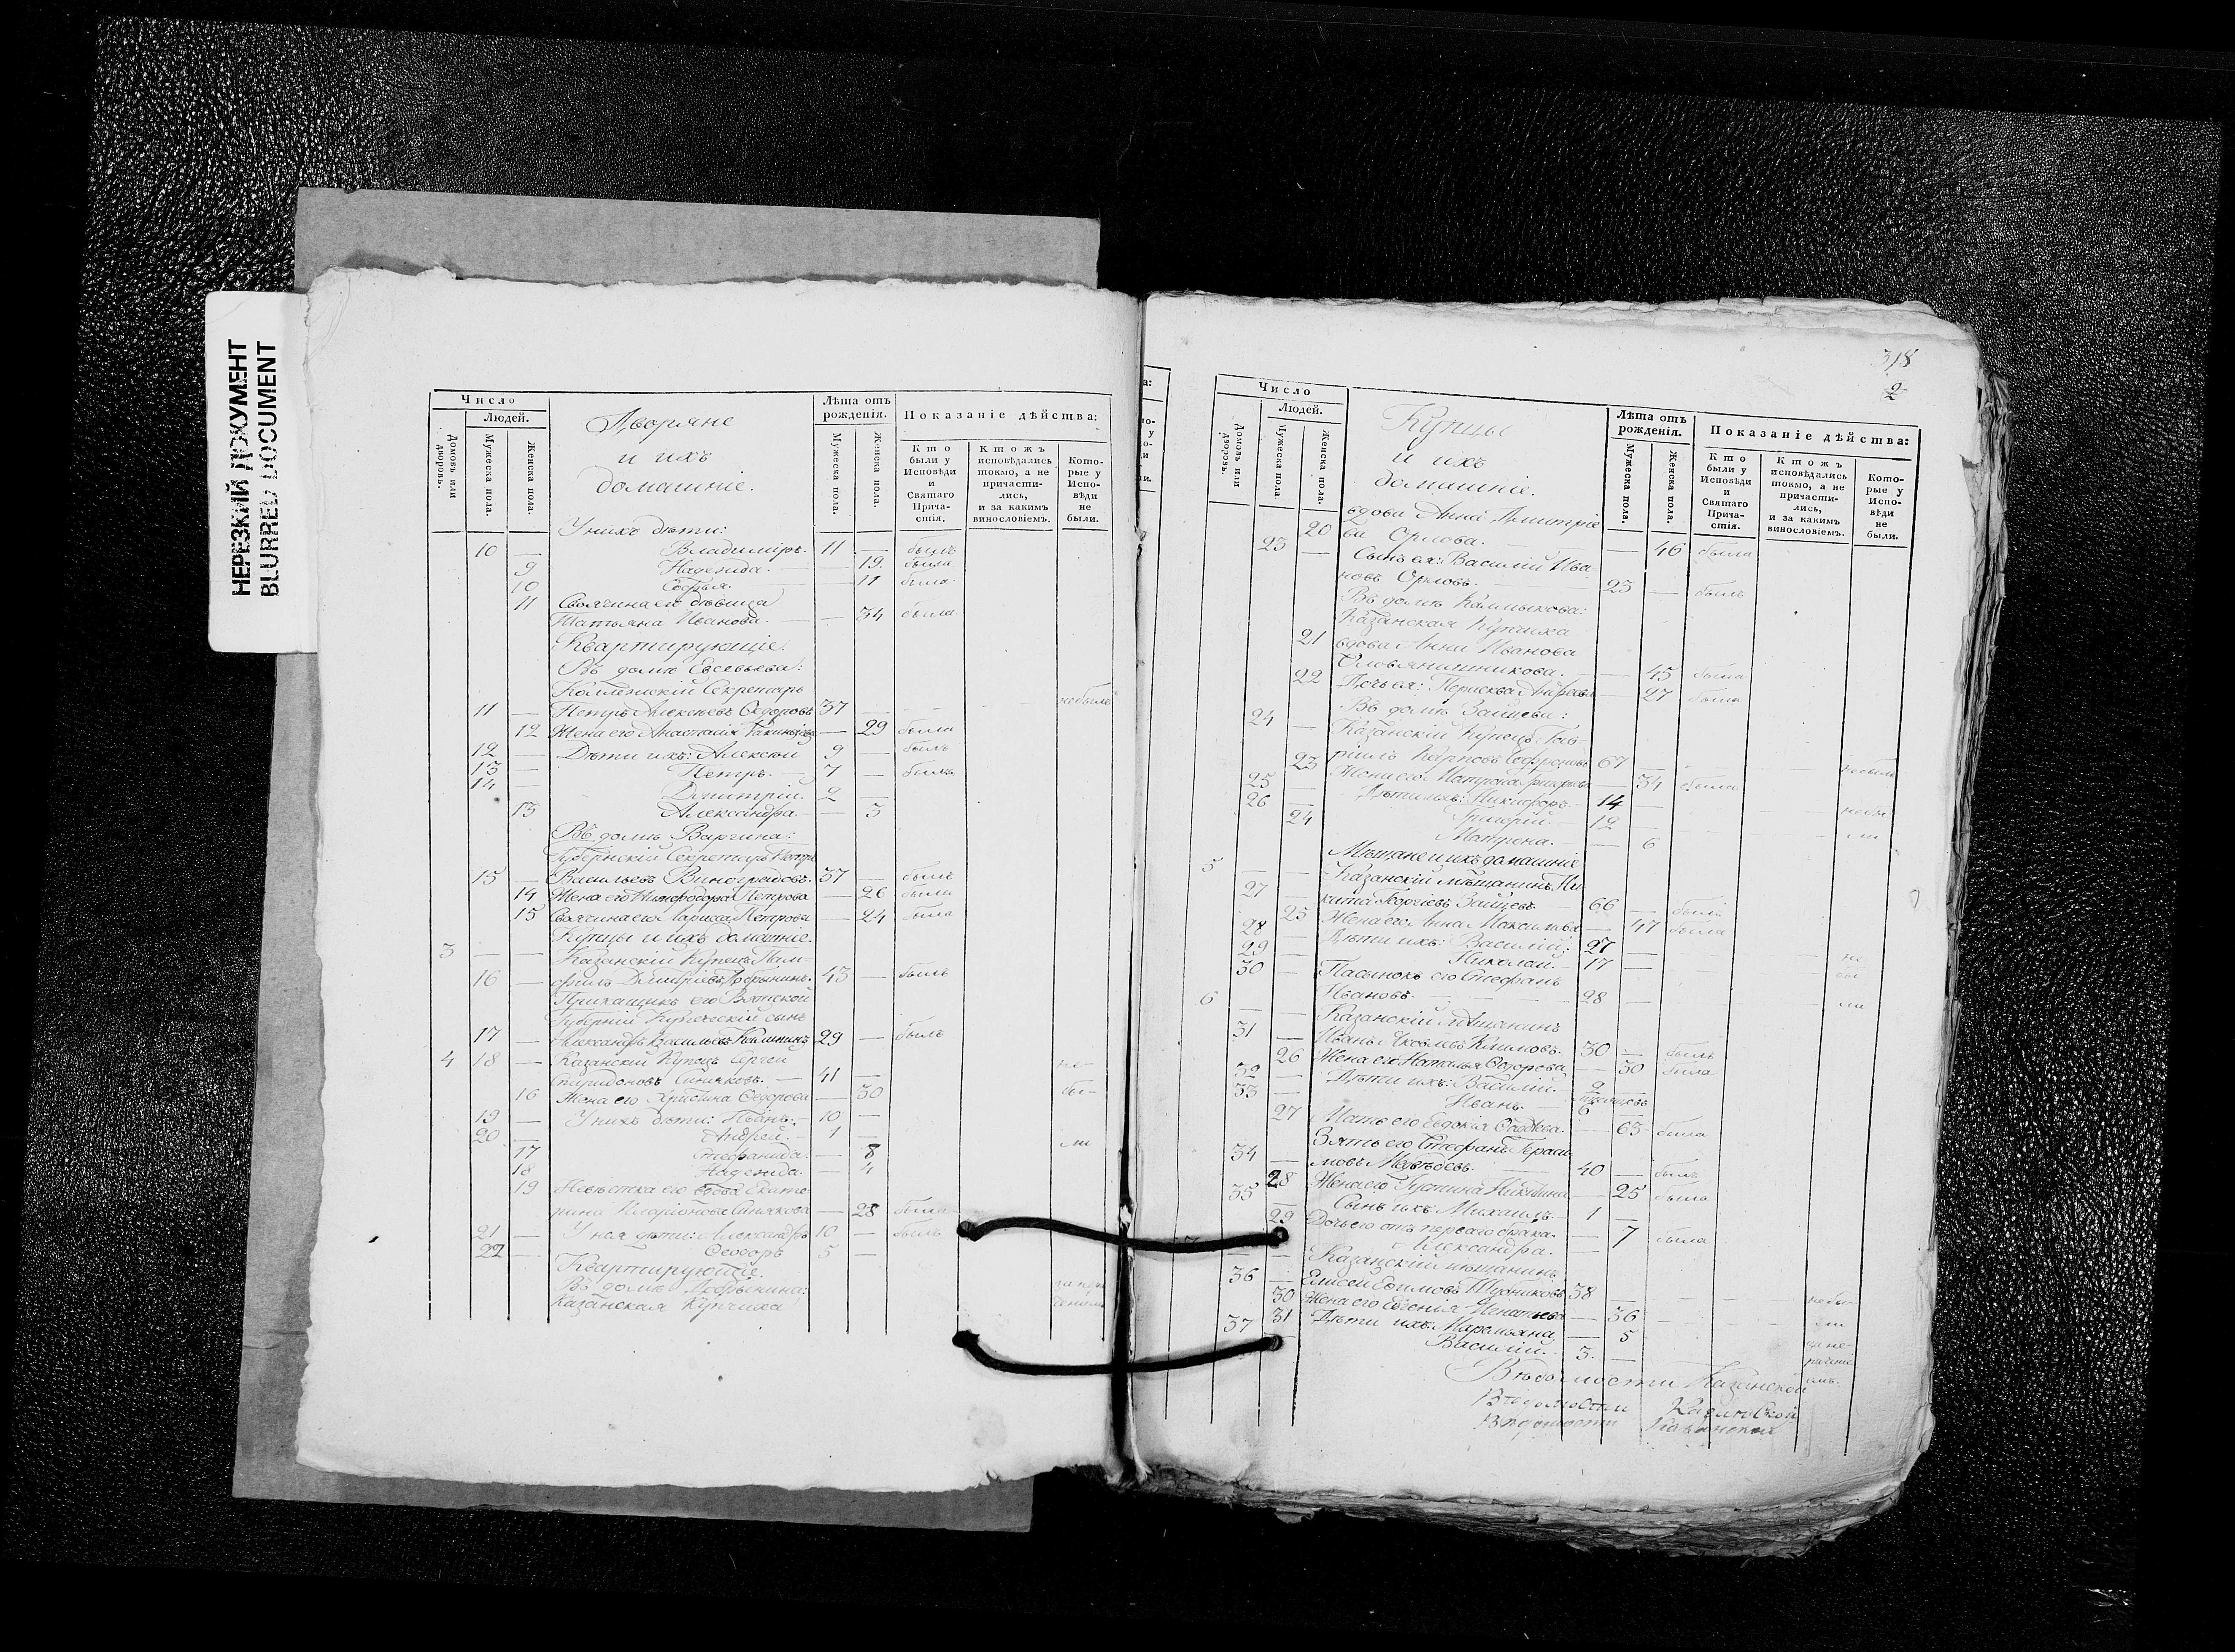 НЕРЕЗКИЙ ДОКУМЕНТ
BLURRED DOCUMENT
Число
Людей.
Домовъ или дворовъ.
Мужеска пола.
Женска пола.
Дворяне
и ихъ
домашніе.
Лѣта отъ рожденія.
Мужеска пола.
Женска пола.
Показаніе дѣйства:
Кто были у Исповѣди и Святаго Причастія.
Ктожъ исповѣдались токмо, а не причастились, и за какимъ винословіемъ.
Которые у Исповѣди не были.
У нихъ дѣти:
10 — Владиміръ. 11 — былъ
9 Надежда. — 19. была
10 Софья. — 11 была
11 Своячина его дѣвица
Татьяна Иванова. — 34 была
Квартирующіе.
Въ домѣ Евсевьева:
Коллежскій Секретарь
11 — Петръ Алексѣевъ Ѳедоровъ 37 — небылъ
12 Жена его Анастасія — 29 была
12 — Дѣти ихъ: Алексѣй 9 — былъ
13 — Петръ. 7 — былъ
14 — Димитрій. 2 —
13 Александра. — 3
Въ домѣ Варгина:
Губернскій Секретарь Петръ
15 — Васильевъ Виноградовъ. 37 — былъ
14 Жена его Петрова — 26 была
15 Своячина его Лариса Петрова — 24 была
Купцы и ихъ домашніе.
3 — — Казанскій Купецъ Пам-
16 — филъ Димитріевъ 43 — былъ
Прикащикъ его Вятской
Губерніи Купеческій сынъ
17 — Александръ Васильевъ Калининъ 29 — былъ
4 18 — Казанскій Купецъ Сергей
Спиридоновъ Синяковъ. — 41 — не-
16 Жена его Христина Ѳедорова — 30 бы-
19 — У нихъ дѣти: Иванъ. 10 —
20 — Андрей. 1 — ли
17 Стефанида. — 8
18 Надежда. — 4
19 Невѣстка его вдова Екате-
рина Синякова — 28 была
21 — У нея дѣти: Александръ 10 — былъ
22 — Ѳеодоръ 5 —
Квартирующіе.
Въ домѣ
Казанская Купчиха
318
2
Число
Людей.
Домовъ или дворовъ.
Мужеска пола.
Женска пола.
Купцы
и ихъ
домашніе.
Лѣта отъ рожденія.
Мужеска пола.
Женска пола.
Показаніе дѣйства:
Кто были у Исповѣди и Святаго Причастія.
Ктожъ исповѣдались токмо, а не причастились, и за какимъ винословіемъ.
Которые у Исповѣди не были.
вдова Анна Димитріе-
20 ва Орлова. — 46 была
23 — Сынъ ея: Василій Ива-
новъ Орловъ. 23 — былъ
Въ домѣ Калмыкова:
Казанская Купчиха
21 вдова Анна Иванова
— 45 была
22 Дочь ея: Андреева — 27 была
Въ домѣ Зайцева:
24 — Казанскій Купецъ Гав-
ріилъ Карповъ Софроновъ 67 — небылъ
23 Жена его Матрона Григорьева — 34 была
25 — Дѣти ихъ: Никифоръ. 14 — небы
26 — Григорій. 12 —
24 Матрона. — 6 ли
Мѣщане и ихъ домашніе
5 — — Казанскій мѣщанинъ Ни-
27 кита Георгіевъ Зайцевъ 66 — былъ
25 Жена его Анна Максимова — 47 была
28 — Дѣти ихъ: Василій. 27 —
29 — Николай. 17 — не
30 — Пасынокъ его Стефанъ бы
Ивановъ. 28 — ли
6 — — Казанскій мѣщанинъ
31 — Иванъ Яковлевъ Климовъ. 30 — былъ
26 Жена его Наталья Ѳедорова — 30 была
32 — Дѣти ихъ: Василій. 2
33 — Иванъ. 6
27 Мать его Евдокія — 63 была
Зять его Стефанъ Гераси-
34 — мовъ 40 — былъ
28 Жена его Никитина — 25 была
35 — Сынъ ихъ Михаилъ. 1 —
29 Дочь его отъ перваго брака
Александра. — 7 была
— — Казанскій мѣщанинъ
36 — Елисей Ефимовъ 38 — небы-
30 Жена его Евгенія Игнатьева — 36 ли
31 Дѣти ихъ: Маремьяна — 5
37 — Василій. 3. —
Вѣдомости Казанской
Вѣдомости Казанской
Вѣдомости Казанской